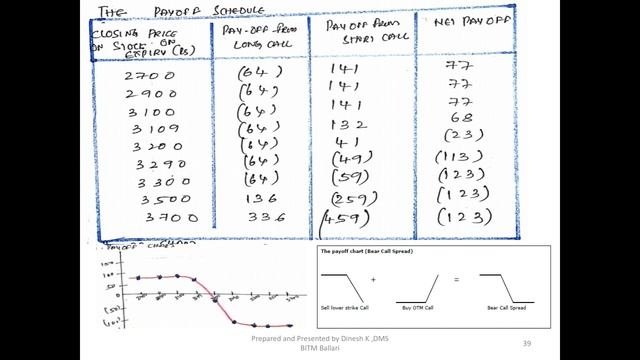 THE PAYOFF SCHEDULE
CLOSING PRICE ON STOCK ON EXPIRY (Rs) PAY-OFF from LONG CALL PAYOFF from SHORT CALL NET PAYOFF
2700 (64) 141 77
2900 (64) 141 77
3100 (64) 141 77
3109 (64) 132 68
3200 (64) 41 (23)
3290 (64) (49) (113)
3300 (64) (59) (123)
3500 136 (259) (123)
3700 336 (459) (123)
150
100
50
0
(50)
(100)
The payoff chart (Bear Call Spread)
+ =
Sell lower strike Call Buy OTM Call Bear Call Spread
Prepared and Presented by Dinesh K ,DMS
BITM Ballari
39